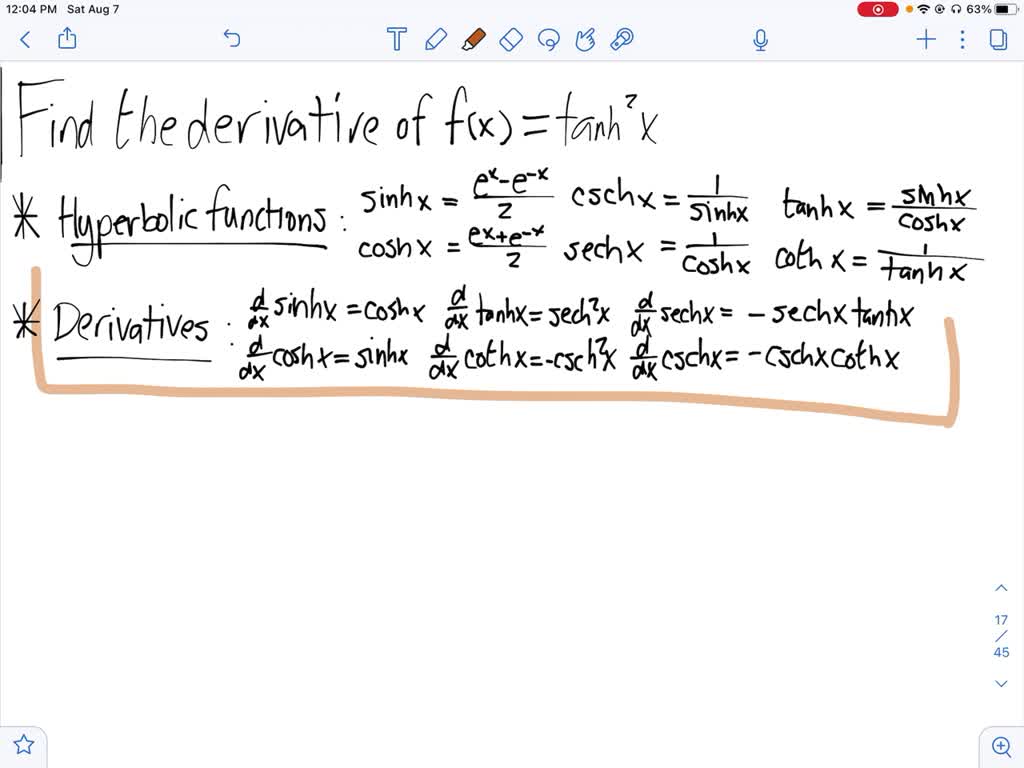 12:04 PM Sat Aug 7 63%
Find the derivative of f(x) = tanh²x
* Hyperbolic functions : sinhx = (e^x - e^-x)/2 cschx = 1/sinhx tanhx = sinhx/coshx
coshx = (e^x + e^-x)/2 sechx = 1/coshx cothx = 1/tanhx
* Derivatives : d/dx sinhx = coshx d/dx tanhx = sech²x d/dx sechx = - sechx tanhx
d/dx coshx = sinhx d/dx cothx = -csch²x d/dx cschx = - cschx cothx
17
/
45